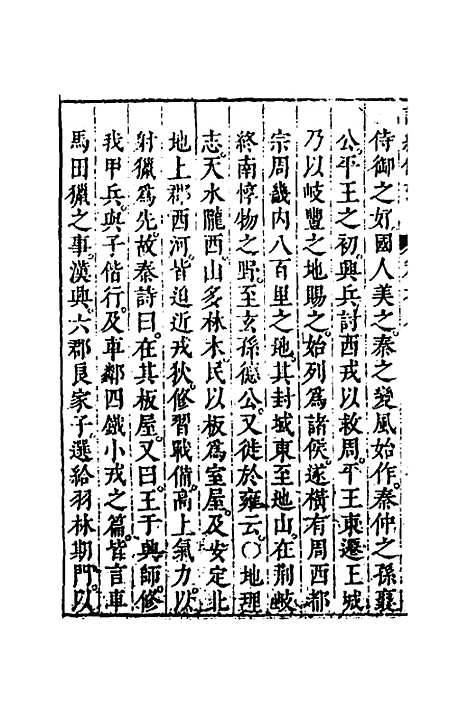 侍御之好國人美之秦之變風始作秦仲之孫襄
公平王之初興兵討西戎以救周平王東遷王城
乃以岐豐之地賜之始列爲諸侯遂横有周西都
宗周畿内八百里之地其封域東至地山在荆岐
終南惇物之野至玄孫德公又徙於雍云○地理
志天水隴西山多林木民以板爲室屋及安定北
地上郡西河皆迫近戎狄修習戰備高上氣力以
射獵爲先故秦詩曰在其板屋又曰王于興師修
我甲兵與子偕行及車鄰四鐵小戎之篇皆言車
馬田獵之事漢興六郡良家子選給羽林期門以